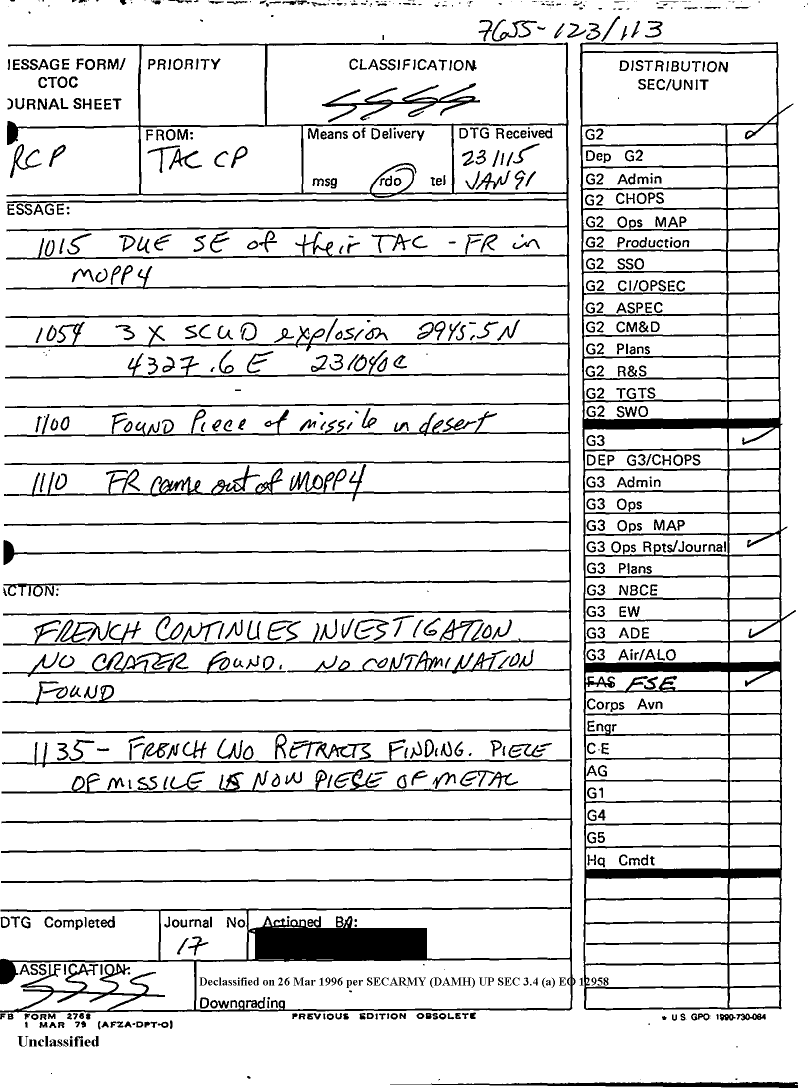 7655-123/113
IESSAGE FORM/
CTOC
OURNAL SHEET
PRIORITY
CLASSIFICATION
SSSS
RCP
FROM:
TAC CP
Means of Delivery
msg rdo tel
DTG Received
231115
JAN 91
ESSAGE:
1015 DUE SE of their TAC - FR in
MOPP4
1054 3 X SCUD explosion 2945.5N
4327.6 E 231040C
1100 FOUND Piece of missile in desert
1110 FR came out of MOPP4
ACTION:
FRENCH CONTINUES INVESTIGATION.
NO CRATER FOUND. NO CONTAMINATION
FOUND
1135 - FRENCH LNO RETRACTS FINDING. PIECE
OF MISSILE IS NOW PIECE OF METAL
DTG Completed
Journal No
17
Actioned BA:
LASSIFICATION:
SSSS
Declassified on 26 Mar 1996 per SECARMY (DAMH) UP SEC 3.4 (a) EO 12958
Downgrading
FB FORM 2768
1 MAR 79 (AFZA-DPT-O)
PREVIOUS EDITION OBSOLETE
* U S GPO 1990-730-084
Unclassified
DISTRIBUTION
SEC/UNIT
G2
Dep G2
G2 Admin
G2 CHOPS
G2 Ops MAP
G2 Production
G2 SSO
G2 CI/OPSEC
G2 ASPEC
G2 CM&D
G2 Plans
G2 R&S
G2 TGTS
G2 SWO
G3
DEP G3/CHOPS
G3 Admin
G3 Ops
G3 Ops MAP
G3 Ops Rpts/Journal
G3 Plans
G3 NBCE
G3 EW
G3 ADE
G3 Air/ALO
FAS FSE
Corps Avn
Engr
C-E
AG
G1
G4
G5
Hq Cmdt